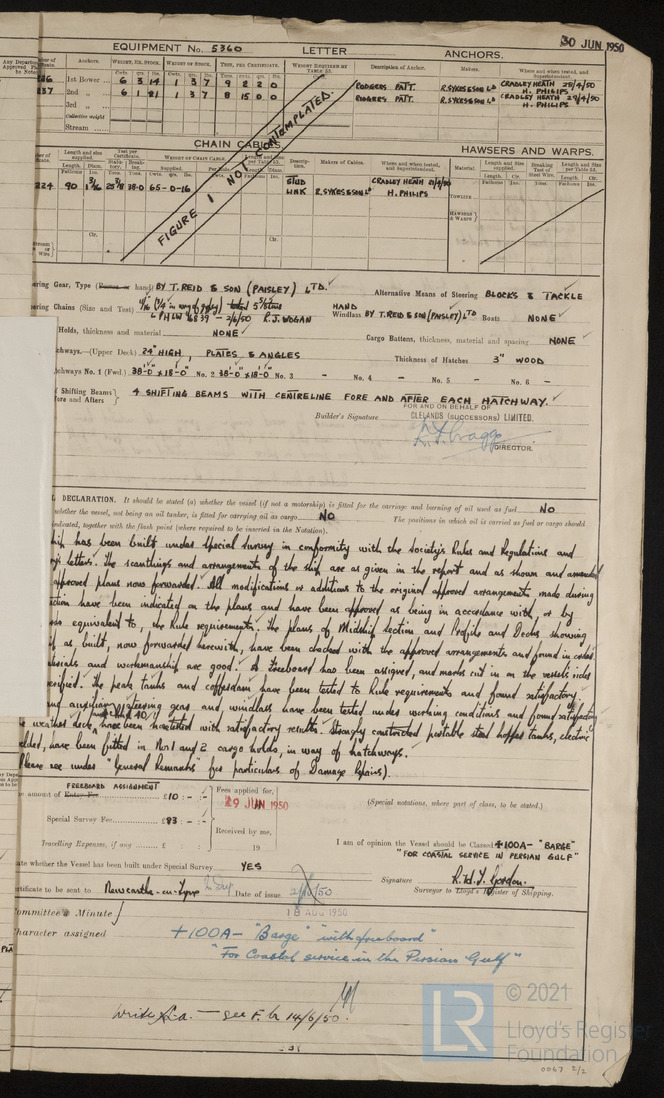 30 JUN 1950
EQUIPMENT No. 5360 LETTER ANCHORS.
Anchors. WEIGHT, EX. STOCK. WEIGHT OF STOCK. TEST, PER CERTIFICATE. WEIGHT REQUIRED BY TABLE 53. Description of Anchor. Makers. Where and when tested, and Superintendent.
1st Bower 6 3 14 1 3 7 9 2 2 0 RODGERS PATT. R. SYKES & SON LD CRADLEY HEATH 28/4/50 H. PHILIPS
237 2nd „ 6 1 21 1 3 7 8 15 0 0 RODGERS PATT. R. SYKES & SON LD CRADLEY HEATH 28/4/50 H. PHILIPS
3rd „
Collective weight
Stream
FIGURE 1 NOT CONTEMPLATED.
CHAIN CABLES. HAWSERS AND WARPS.
Length and size supplied. Test per Certificate. WEIGHT OF CHAIN CABLE. Length and size per Table 53. Description. Makers of Cables. Where and when tested, and Superintendent. Material. Length and Size supplied. Breaking Test of Steel Wire. Length and Size per Table 53.
224 90 1 3/16 38·0 65-0-16 STUD LINK R. SYKES & SON LD CRADLEY HEATH H. PHILIPS
TOWLINE
HAWSERS & WARPS
Steering Gear, Type (Steam or hand) BY T. REID & SON (PAISLEY) LTD. Alternative Means of Steering BLOCKS & TACKLE
Chains (Size and Test) LPHLW 6839 - 2/6/50 R. J. WOGAN HAND Windlass BY T. REID & SON (PAISLEY) LTD Boats NONE
Holds, thickness and material NONE Cargo Battens, thickness, material and spacing NONE
(Upper Deck) 24" HIGH, PLATES & ANGLES Thickness of Hatches 3" WOOD
No. 1 (Fwd.) 38'-0" x 18'-0" No. 2 38'-0" x 18'-0" No. 3 - No. 4 - No. 5 - No. 6 -
Shifting Beams Fore and Afters } 4 SHIFTING BEAMS WITH CENTRELINE FORE AND AFTER EACH HATCHWAY.
FOR AND ON BEHALF OF
Builder's Signature CLELANDS (SUCCESSORS) LIMITED.
DIRECTOR.
DECLARATION. It should be stated (a) whether the vessel (if not a motorship) is fitted for the carriage and burning of oil used as fuel No
whether the vessel, not being an oil tanker, is fitted for carrying oil as cargo No The positions in which oil is carried as fuel or cargo should
indicated, together with the flash point (where required to be inserted in the Notation).
ship has been built under special survey in conformity with the Society's Rules and Regulations and
letters. The scantlings and arrangements of the ship are as given in the report and as shown and amended
approved plans now forwarded. All modifications or additions to the original approved arrangements made during
have been indicated on the plans and have been approved as being in accordance with, or by
equivalent to, the Rule requirements. The plans of Midship Section and Profile and Decks showing
as built, now forwarded herewith, have been checked with the approved arrangements and found in order.
materials and workmanship are good. A Freeboard has been assigned, and marks cut in on the vessels sides
verified. The peak tanks and cofferdam have been tested to Rule requirements and found satisfactory
and auxiliary steering gear and windlass have been tested under working conditions and found satisfactory
weather deck have been hosetested with satisfactory results. Strongly constructed portable steel hopper tanks, electric
welded, have been fitted in No 1 and 2 cargo holds, in way of hatchways.
(Please see under "General Remarks" for particulars of Damage Repairs).
FREEBOARD ASSIGNMENT
amount of Entry Fee £10 : - : - Fees applied for, 29 JUN 1950 (Special notations, where part of class, to be stated.)
Special Survey Fee £83 : - : -
Travelling Expenses, if any £ : : Received by me, 19
I am of opinion the Vessel should be Classed +100A- "BARGE"
"FOR COASTAL SERVICE IN PERSIAN GULF"
State whether the Vessel has been built under Special Survey YES
Signature R. W. Y. Gordon.
Surveyor to Lloyd's Register of Shipping.
Certificate to be sent to Newcastle-on-Tyne Date of issue
18 AUG 1950
Committee's Minute
Character assigned +100A- "Barge" "with freeboard"
"For Coastal service in the Persian Gulf"
see F. 14/6/50.
LR
© 2021
Lloyd's Register
Foundation
0067 2/2